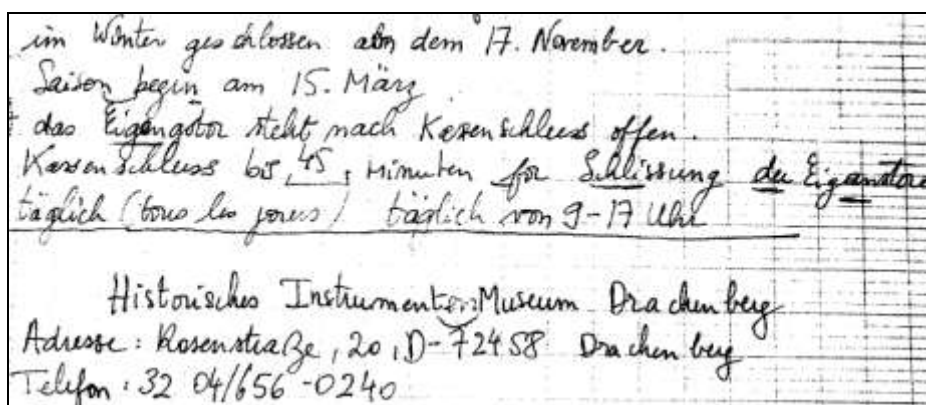 im Winter geschlossen ab dem 17. November.
Saison begin am 15. März
das Eigengotor steht nach Kassenschluss offen.
Kassenschluss bis 45 minuten for Schlissung der Eigangtore
täglich (tous les jours) täglich von 9-17 Uhr
Historisches Instrumenten Museum Drachenberg
Adresse: Rosenstraße, 20, D-72458 Drachenberg
Telefon: 32 04/656-0240